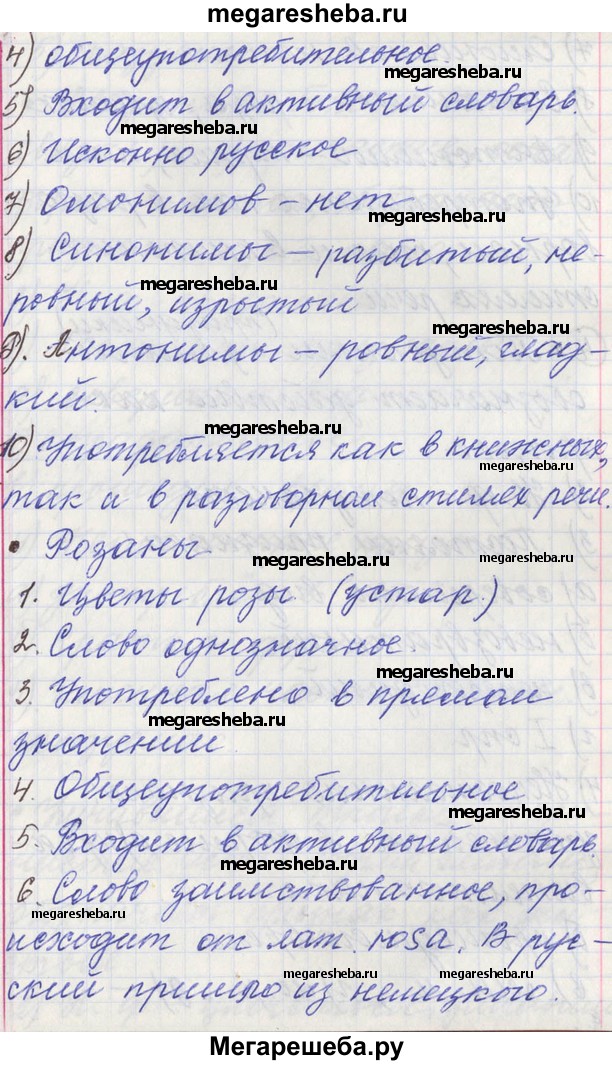 megaresheba.ru
4) общеупотребительное.
megaresheba.ru
5) Входит в активный словарь.
megaresheba.ru
6) Исконно русское
megaresheba.ru
7) Омонимов – нет
megaresheba.ru
8) Синонимы – разбитый, не-
megaresheba.ru
ровный, изростый
megaresheba.ru
9). Антонимы – ровный, глад-
megaresheba.ru
кий.
megaresheba.ru
10) Употребляется как в книжных,
megaresheba.ru
так и в разговорном стилях речи.
• Розаны
megaresheba.ru
1. Цветы розы (устар.)
megaresheba.ru
2. Слово однозначное.
megaresheba.ru
3. Употреблено в прямом
megaresheba.ru
значении
megaresheba.ru
4. Общеупотребительное
megaresheba.ru
5. Входит в активный словарь.
megaresheba.ru
6. Слово заимствованное, про-
megaresheba.ru
исходит от лат. rosa. В рус-
megaresheba.ru
ский пришло из немецкого.
megaresheba.ru
Мегарешеба.ру